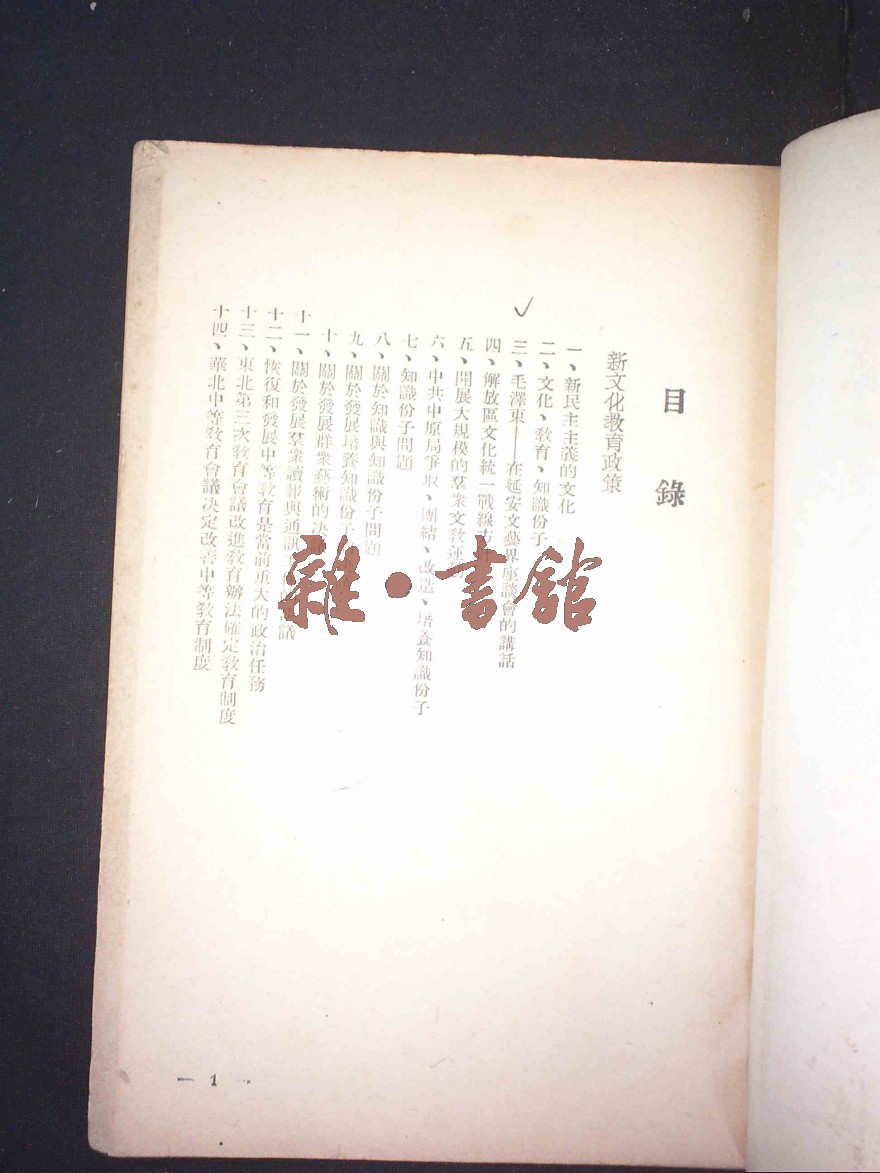 目錄
新文化教育政策
一、新民主主義的文化
二、文化、教育、知識份子
三、毛澤東——在延安文藝界座談會的講話
四、解放區文化統一戰線方
五、開展大規模的羣衆文教運
六、中共中原局爭取、團結、改造、培養知識份子
七、知識份子問題
八、關於知識與知識份子問題
九、關於發展培養知識份子
十、關於發展群衆藝術的决
十一、關於發展羣衆讀報與通訊 議
十二、恢復和發展中等教育是當前重大的政治任務
十三、東北第三次教育會議改進教育辦法確定教育制度
十四、華北中等教育會議决定改善中等教育制度
— 1 —
雜·書館